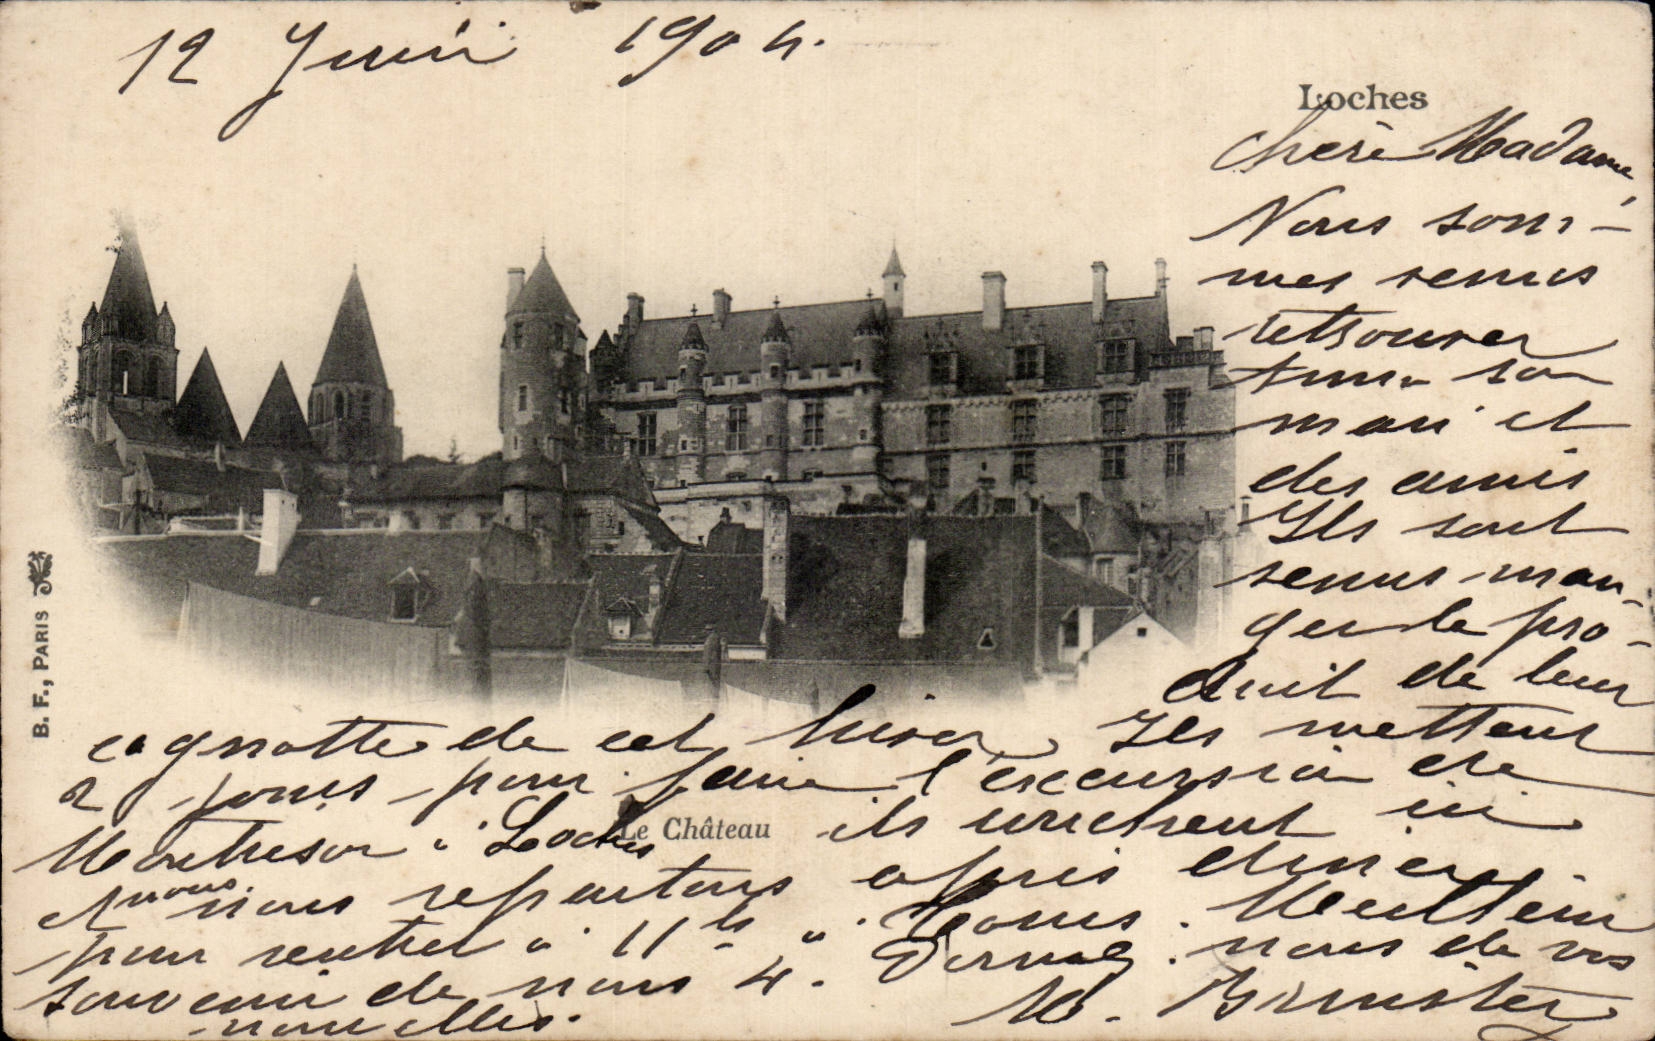 12 Juin 1904.
Loches
Chère Madame,
Nous som-
mes venus
retrouver
mon
mari et
des amis
Ils sont
venus man-
ger le pro-
duit de leur
cagnotte de cet hiver Ils mettent
2 jours pour faire l'excursion de
Montrésor à Loches ils couchent ici
et nous nous repartons après diner
pour rentrer à 11 hs à Tours. Meilleur
souvenir de nous 4. Donnez nous de vos
nouvelles.
M.
Le Château
B. F., PARIS